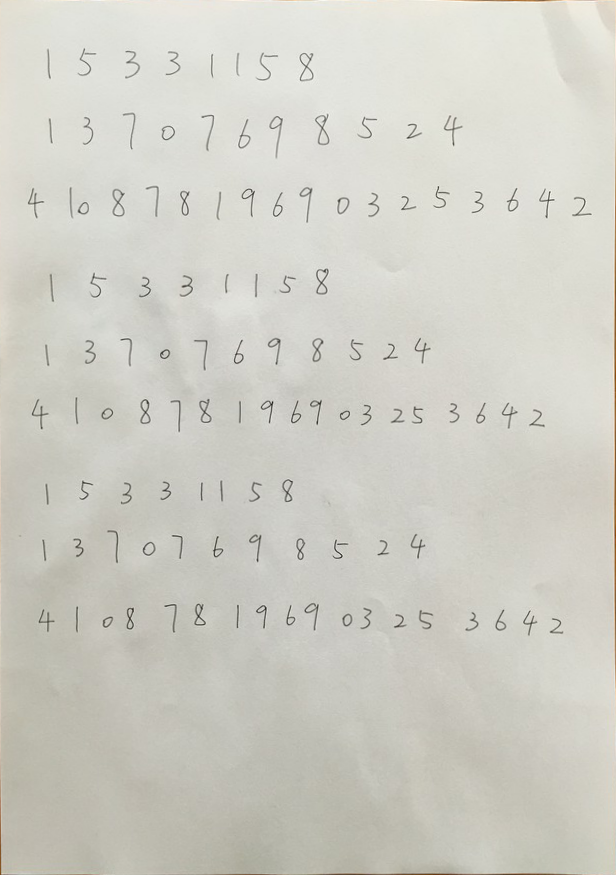 1 5 3 3 1 1 5 8
1 3 7 0 7 6 9 8 5 2 4
4 1 0 8 7 8 1 9 6 9 0 3 2 5 3 6 4 2
1 5 3 3 1 1 5 8
1 3 7 0 7 6 9 8 5 2 4
4 1 0 8 7 8 1 9 6 9 0 3 2 5 3 6 4 2
1 5 3 3 1 1 5 8
1 3 7 0 7 6 9 8 5 2 4
4 1 0 8 7 8 1 9 6 9 0 3 2 5 3 6 4 2